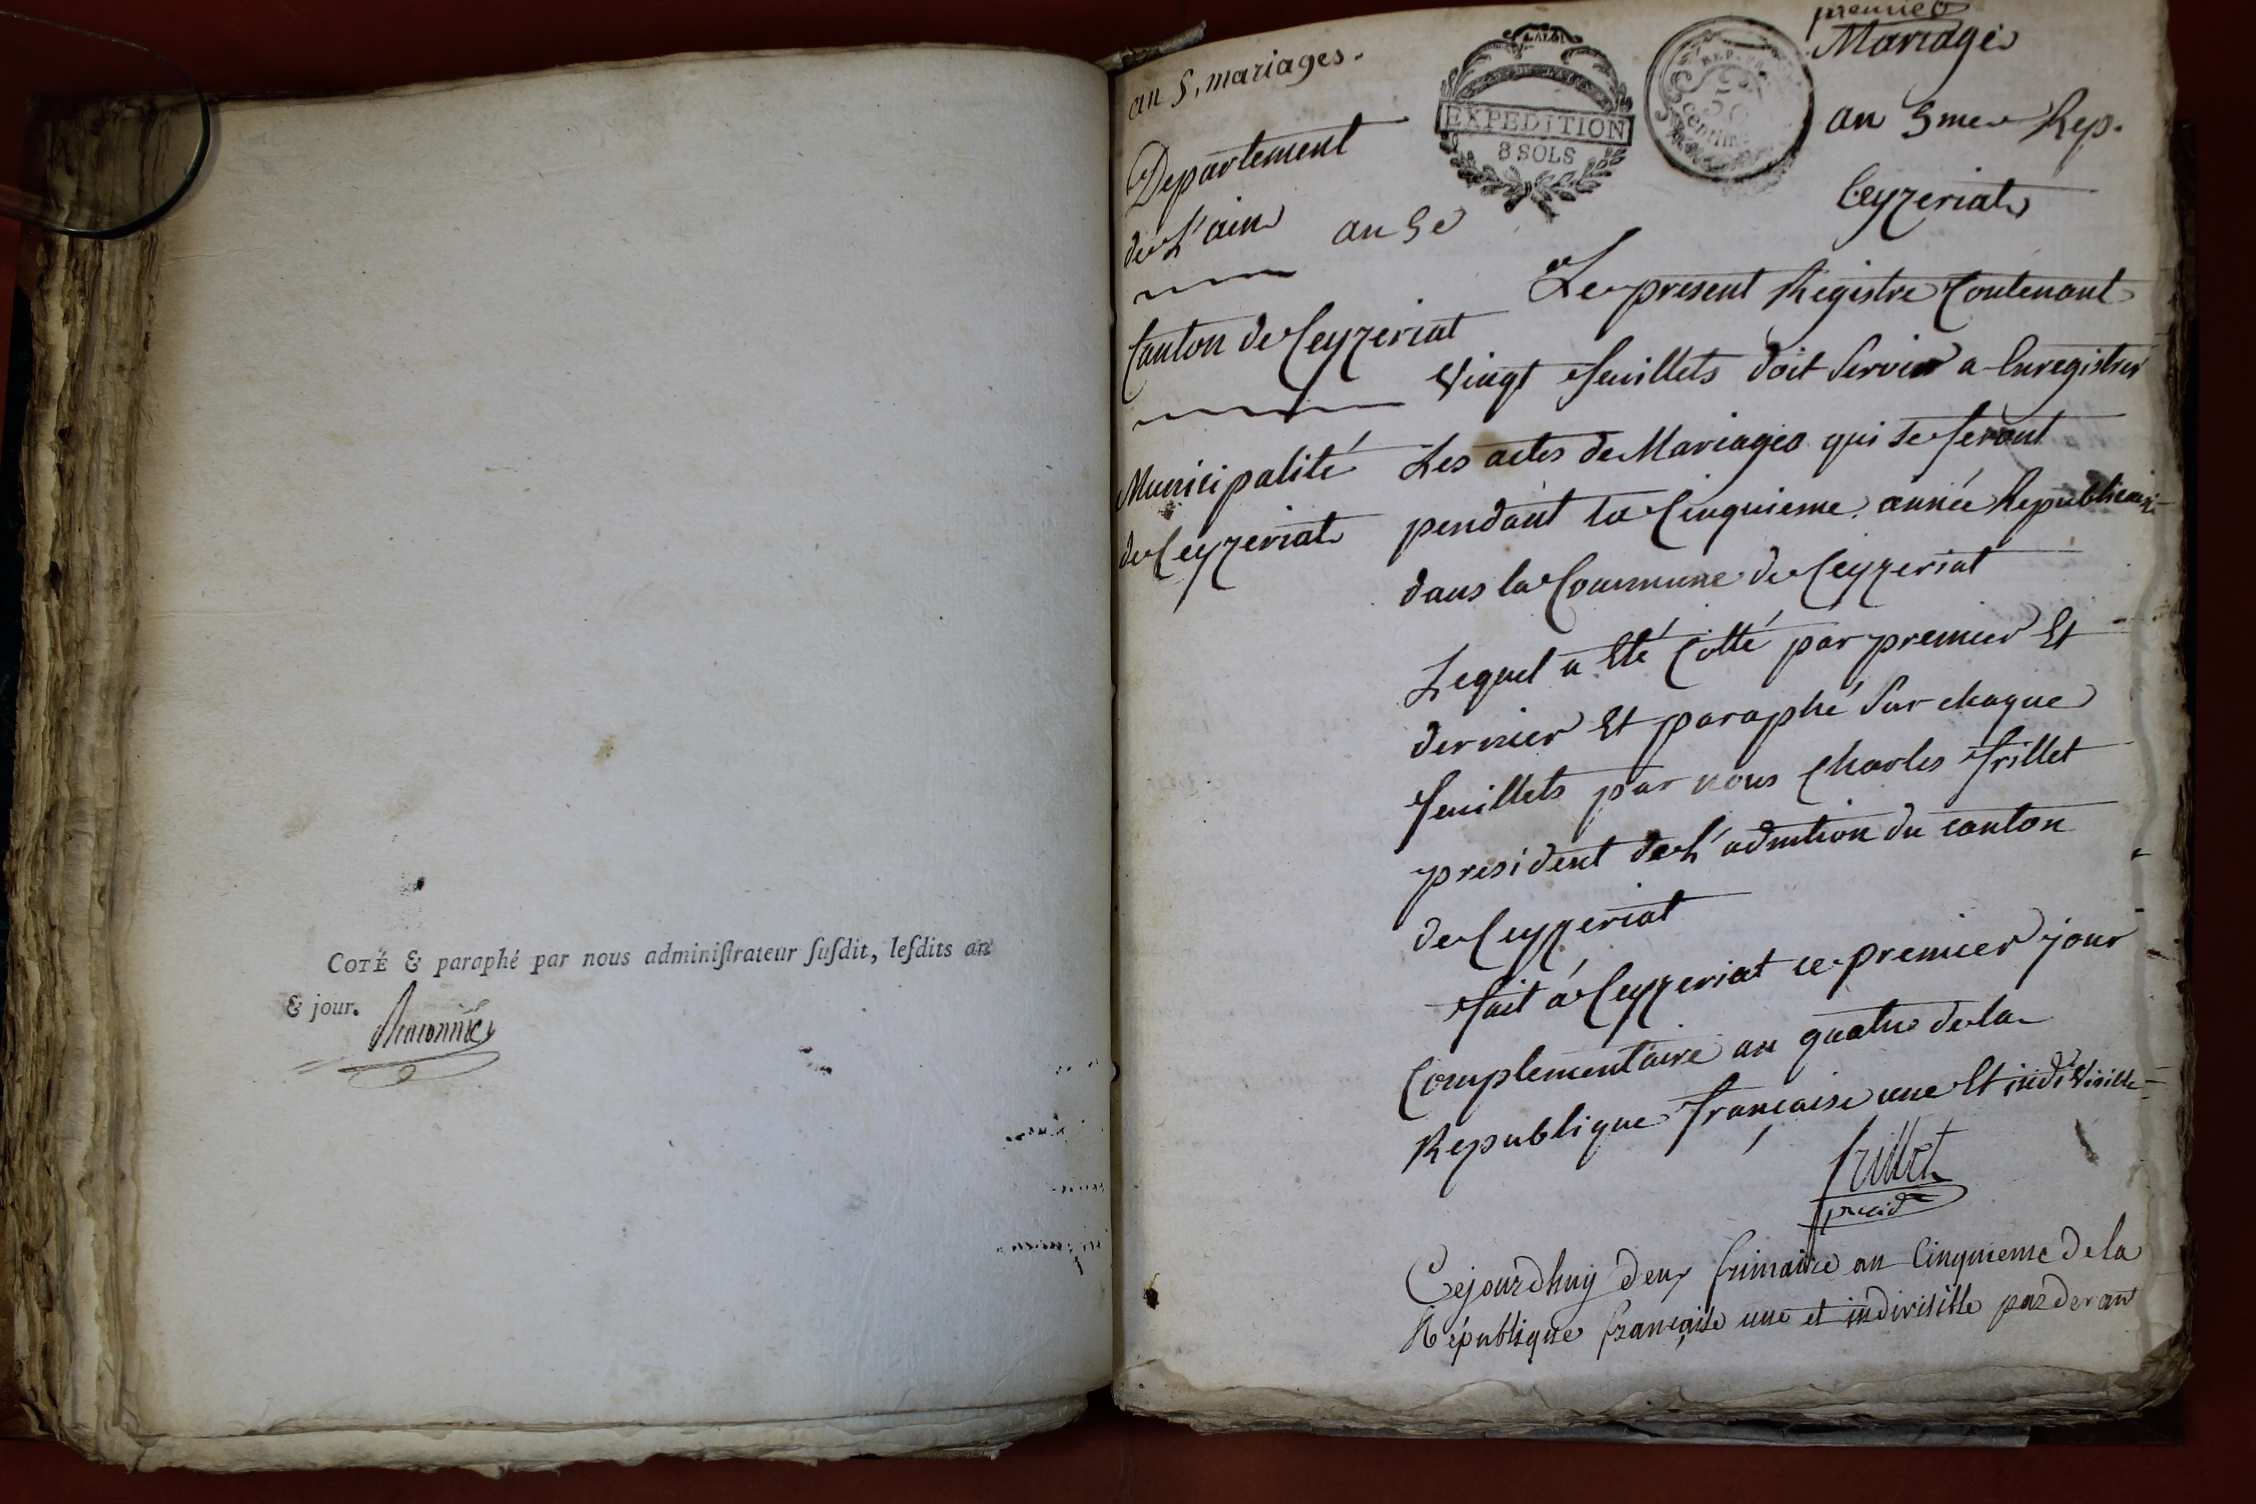 COTÉ & paraphé par nous adminiſtrateur ſuſdit, leſdits an
& jour.
an 5. mariages.
EXPEDITION
8 SOLS
REP. FRA
50
centime
premier
Mariages
an 5me Rep.
Ceyzeriat
Departement
de L'ain
an 5e
Canton de Ceyzeriat
Municipalité
de Ceyzeriat
Le present Registre Contenant
Vingt feuillets doit Servir a Enregistrer
Les actes de Mariages qui se feront
pendant la Cinquieme année Republicain-
dans la Commune de Ceyzeriat
Lequel a Eté Cotté par premier Et
dernier Et paraphé Sur chaque
feuillets par nous Charles frillet
president de L'admtion du canton
de Ceyzeriat
fait á Ceyzeriat ce premier jour
Complementaire an quatre de la
Republique francaise une Et indiVisible
frillet
presidt
Cejourdhuy deux frimaire an Cinquieme de la
République française une et indivisible pardevant